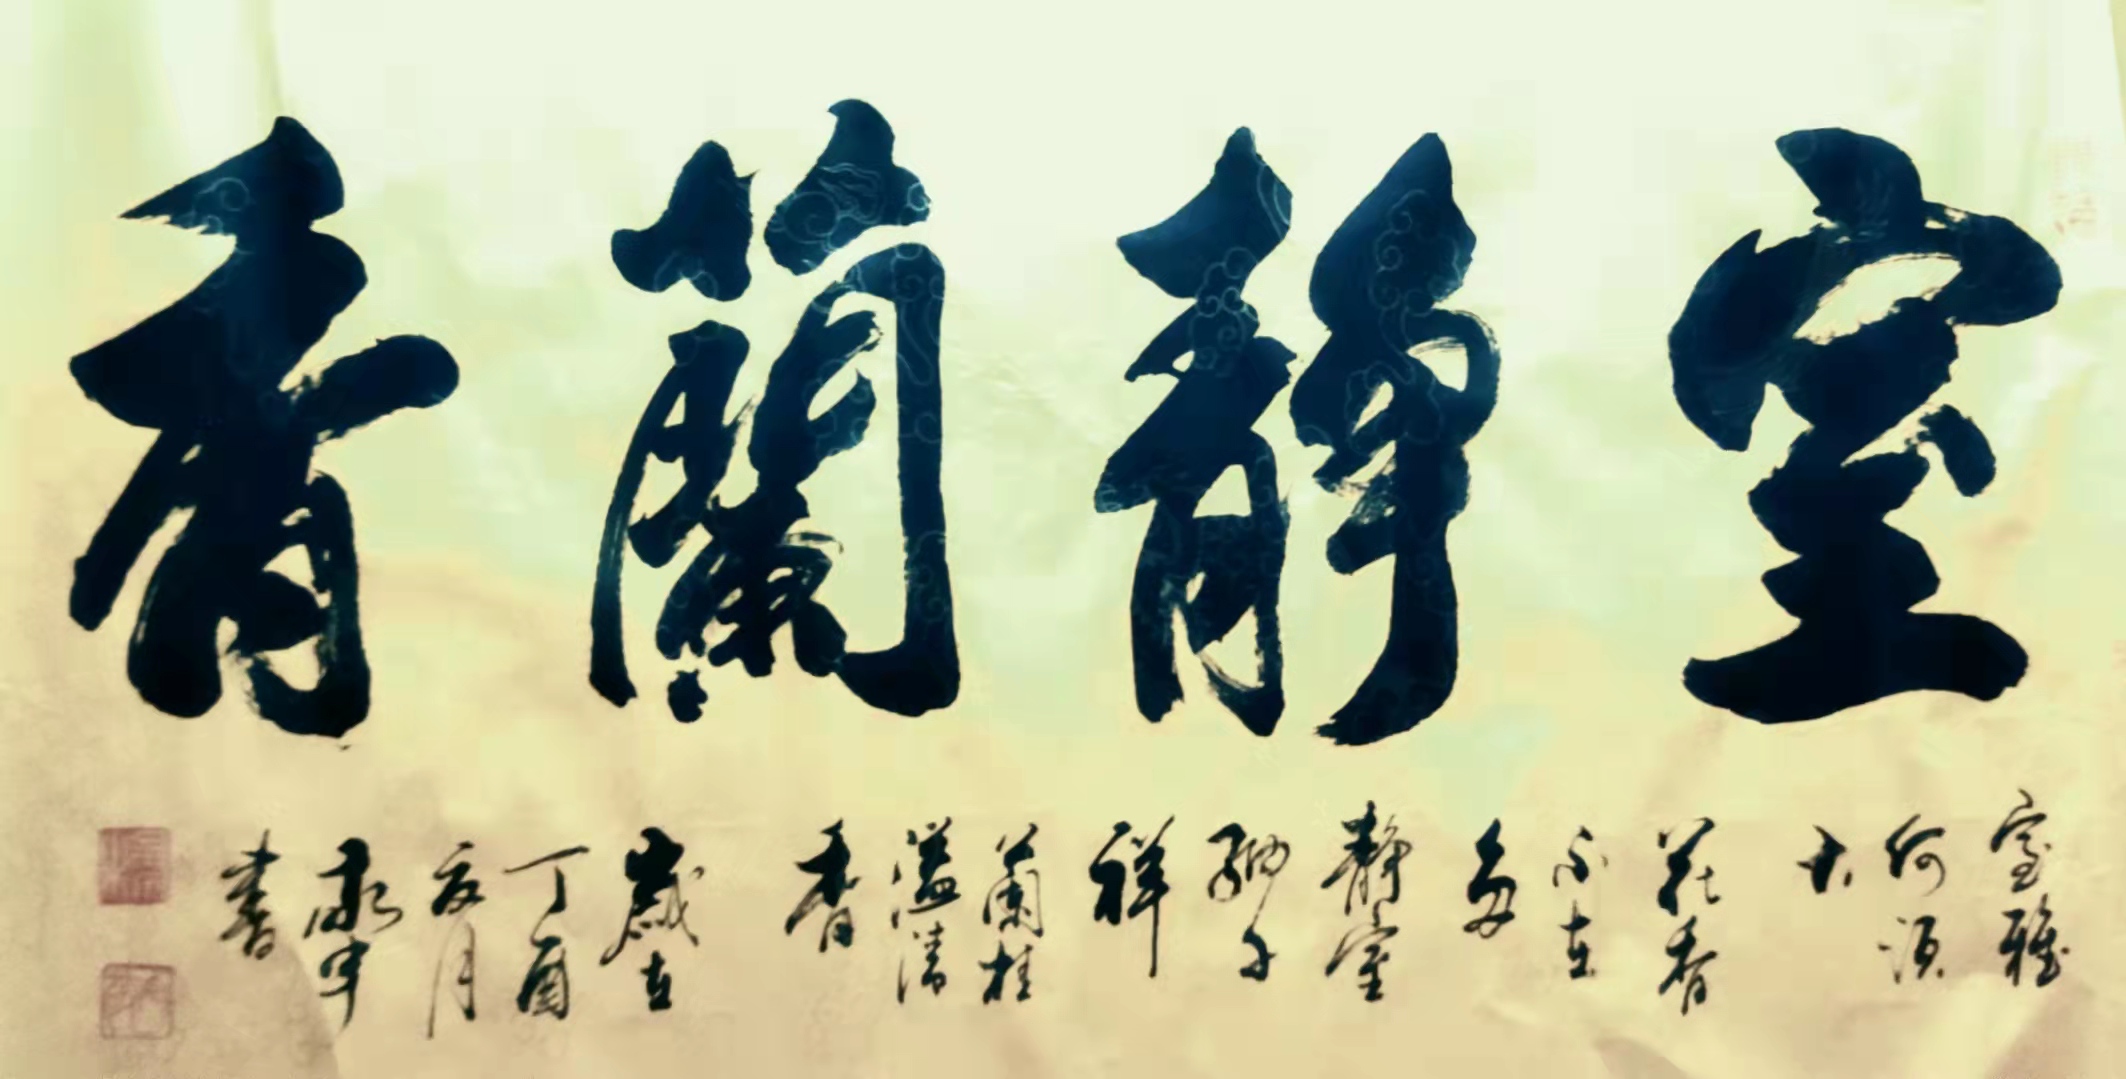 室静蘭香
室雅
何須
大
花香
不在
多
静室
納千
祥
蘭桂
溢清
香
歲在
丁酉
夏月
書